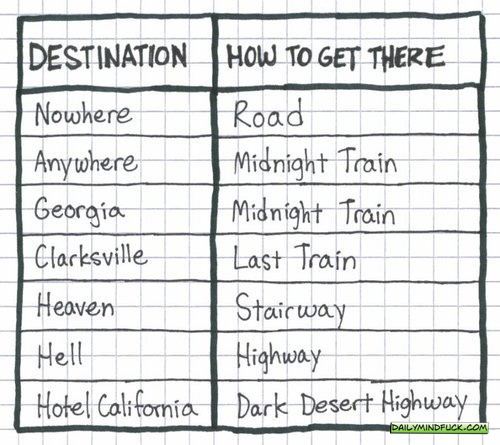 DESTINATION HOW TO GET THERE
Nowhere Road
Anywhere Midnight Train
Georgia Midnight Train
Clarksville Last Train
Heaven Stairway
Hell Highway
Hotel California Dark Desert Highway
DAILYMINDFUCK.COM